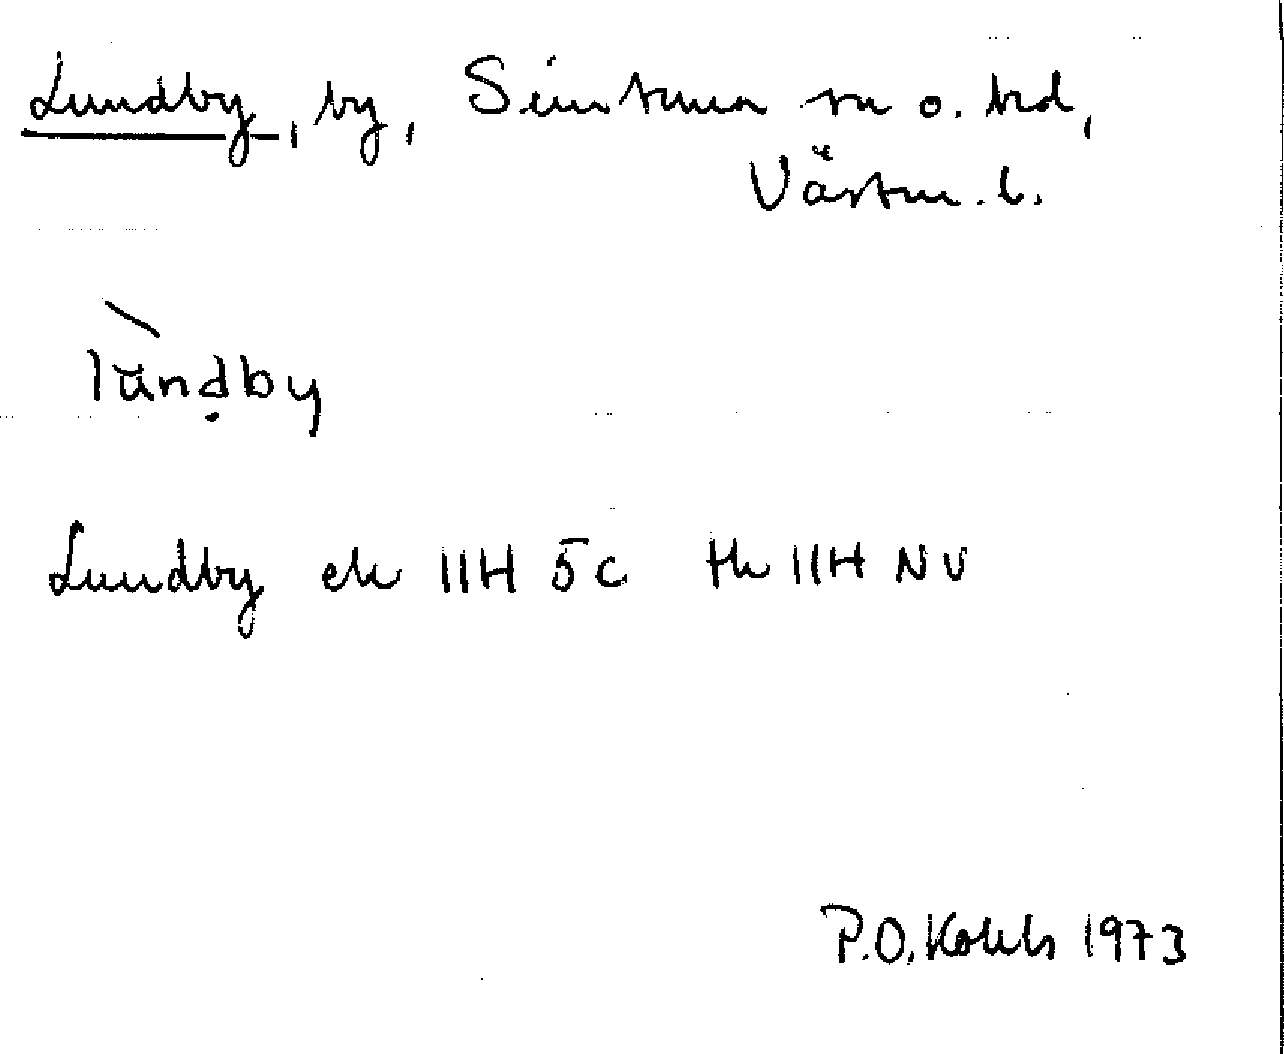 Lundby, by, Simtuna sn o. hd,
Västm. l.
lùndby
Lundby ek 11H 5c th 11H NV
P.O. 1973